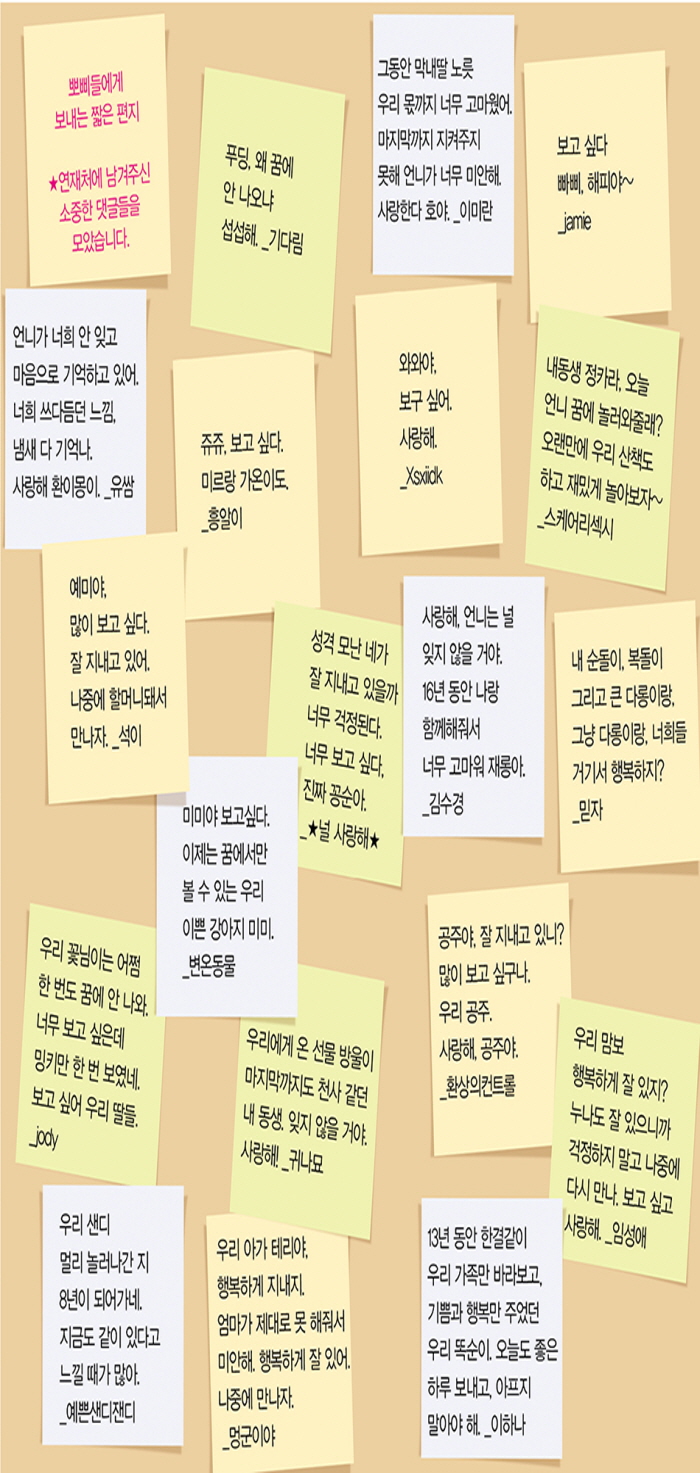 뽀삐들에게
보내는 짧은 편지
★연재처에 남겨주신
소중한 댓글들을
모았습니다.
푸딩, 왜 꿈에
안 나오냐
섭섭해. _기다림
그동안 막내딸 노릇
우리 몫까지 너무 고마웠어.
마지막까지 지켜주지
못해 언니가 너무 미안해.
사랑한다 호야. _이미란
보고 싶다
빠삐, 해피야~
_jamie
언니가 너희 안 잊고
마음으로 기억하고 있어.
너희 쓰다듬던 느낌,
냄새 다 기억나.
사랑해 환이몽이. _유쌈
쥬쥬, 보고 싶다.
미르랑 가온이도.
_흥알이
와와야,
보구 싶어.
사랑해.
_Xsxiidk
내동생 정카라, 오늘
언니 꿈에 놀러와줄래?
오랜만에 우리 산책도
하고 재밌게 놀아보자~
_스케어리섹시
예미야,
많이 보고 싶다.
잘 지내고 있어.
나중에 할머니돼서
만나자. _석이
성격 모난 네가
잘 지내고 있을까
너무 걱정된다.
너무 보고 싶다,
진짜 꽁순아.
_★널 사랑해★
사랑해, 언니는 널
잊지 않을 거야.
16년 동안 나랑
함께해줘서
너무 고마워 재롱아.
_김수경
내 순돌이, 복돌이
그리고 큰 다롱이랑,
그냥 다롱이랑, 너희들
거기서 행복하지?
_믿자
미미야 보고싶다.
이제는 꿈에서만
볼 수 있는 우리
이쁜 강아지 미미.
_변온동물
우리 꽃님이는 어쩜
한 번도 꿈에 안 나와.
너무 보고 싶은데
밍키만 한 번 보였네.
보고 싶어 우리 딸들.
_jody
우리에게 온 선물 방울이
마지막까지도 천사 같던
내 동생. 잊지 않을 거야.
사랑해! _귀나묘
공주야, 잘 지내고 있니?
많이 보고 싶구나.
우리 공주.
사랑해, 공주야.
_환상의컨트롤
우리 맘보
행복하게 잘 있지?
누나도 잘 있으니까
걱정하지 말고 나중에
다시 만나. 보고 싶고
사랑해. _임성애
우리 샌디
멀리 놀러나간 지
8년이 되어가네.
지금도 같이 있다고
느낄 때가 많아.
_예쁜샌디잰디
우리 아가 테리야,
행복하게 지내지.
엄마가 제대로 못 해줘서
미안해. 행복하게 잘 있어.
나중에 만나자.
_멍군이야
13년 동안 한결같이
우리 가족만 바라보고,
기쁨과 행복만 주었던
우리 똑순이. 오늘도 좋은
하루 보내고, 아프지
말아야 해. _이하나